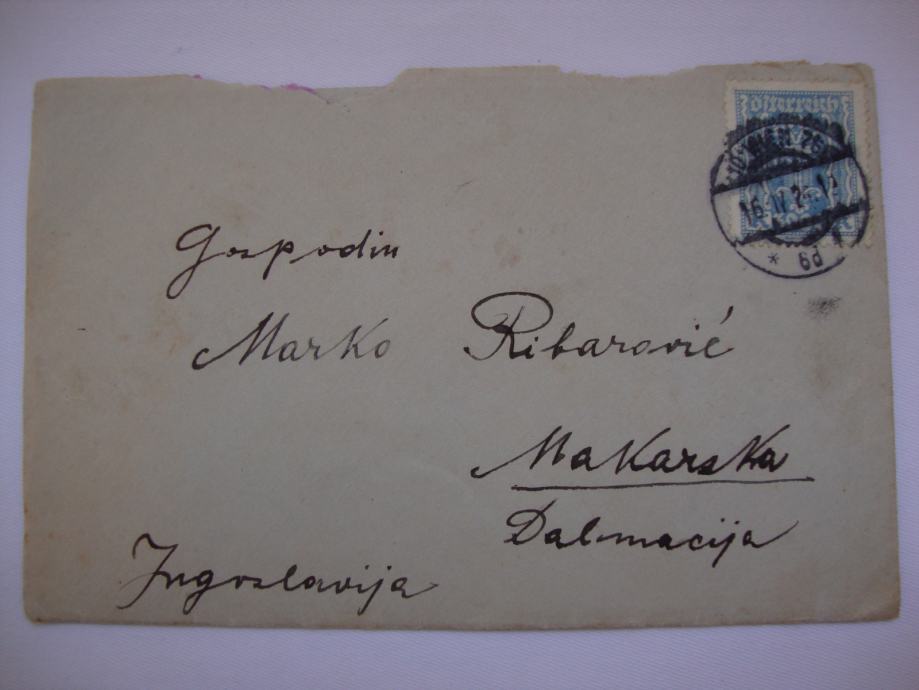 österreich
WIEN
* 6d
Gospodin
Marko Ribarović
Makarska
Dalmacija
Jugoslavija